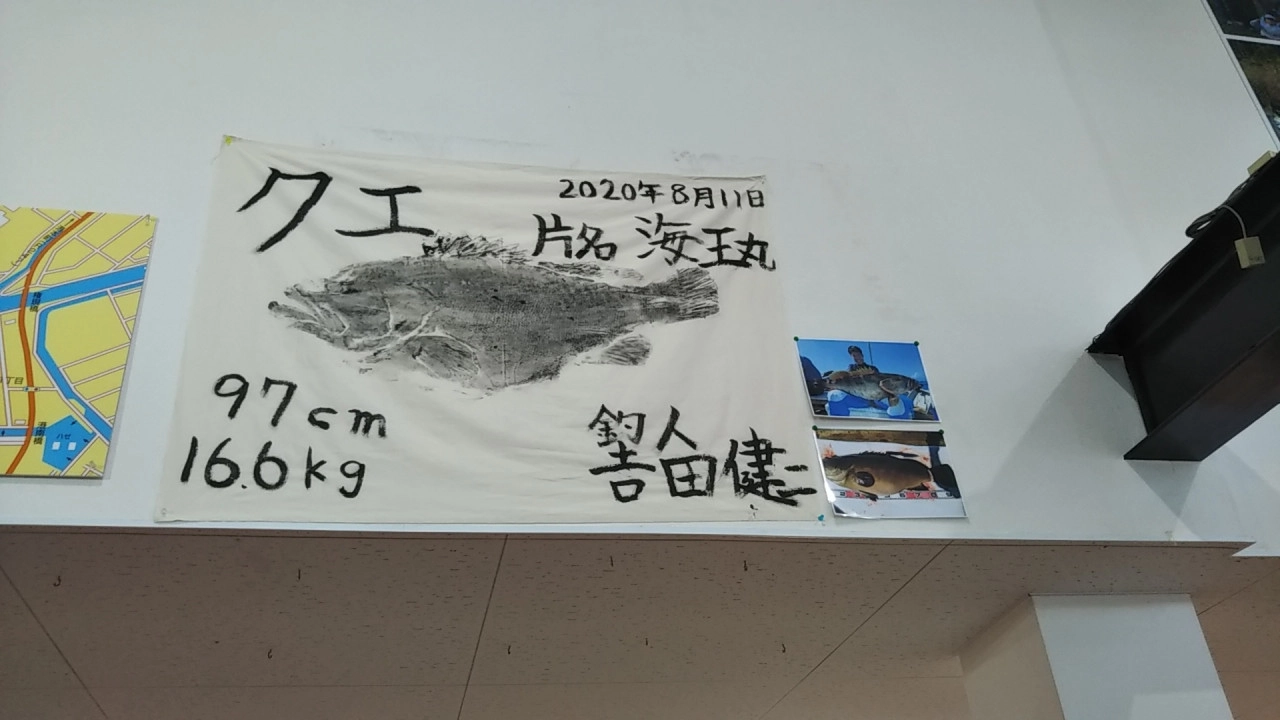 クエ
2020年8月11日
片名 海王丸
97cm
16.6kg
釣人
吉田健二
ハゼ
丁目